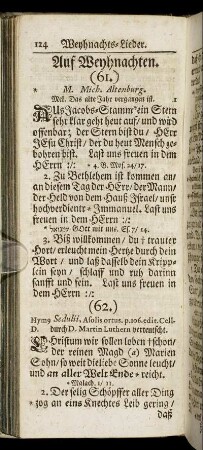 124 Weyhnachts-Lieder.
Auf Weyhnachten.
(61.)
* M. Mich. Altenburg.
Mel. Das alte Jahr vergangen ist. 1
AUs Jacobs-Stamm * ein Stern
sehr klar geht heut auf/ und wird
offenbar; der Stern bist du/ HErr
JEsu Christ/ der du heut Mensch ge-
bohren bist. Last uns freuen in dem
HErrn :/: * 4. B. Mos. 24/17.
2. Zu Bethlehem ist kommen an/
an diesem Tag der HErr/ der Mann/
der Held von dem Hauß Israel/ unser
hochverdienter * Immanuel. Last uns
freuen in dem HErrn :/:
GOtt mit uns. Es. 7/14.
3. Biß willkommen/ du † trauter
Hort/ erleucht mein Hertze durch dein
Wort/ und laß dasselb dein Kripp-
lein seyn/ schlaff und ruh darinn
sanfft und fein. Last uns freuen in
dem HErrn :/:
(62.)
Hymn Sedulii, A solis ortus. p. 106. edit. Cell-
D. durch D. Martin Luthern verteutscht.
CHristum wir sollen loben †schon/
der reinen Magd (a) Marien
Sohn/ so weit die liebe Sonne leucht/
und an aller Welt Ende * reicht.
* Malach. 1/11.
2. Der selig Schöpffer aller Ding
* zog an eins Knechtes Leib gering/
daß